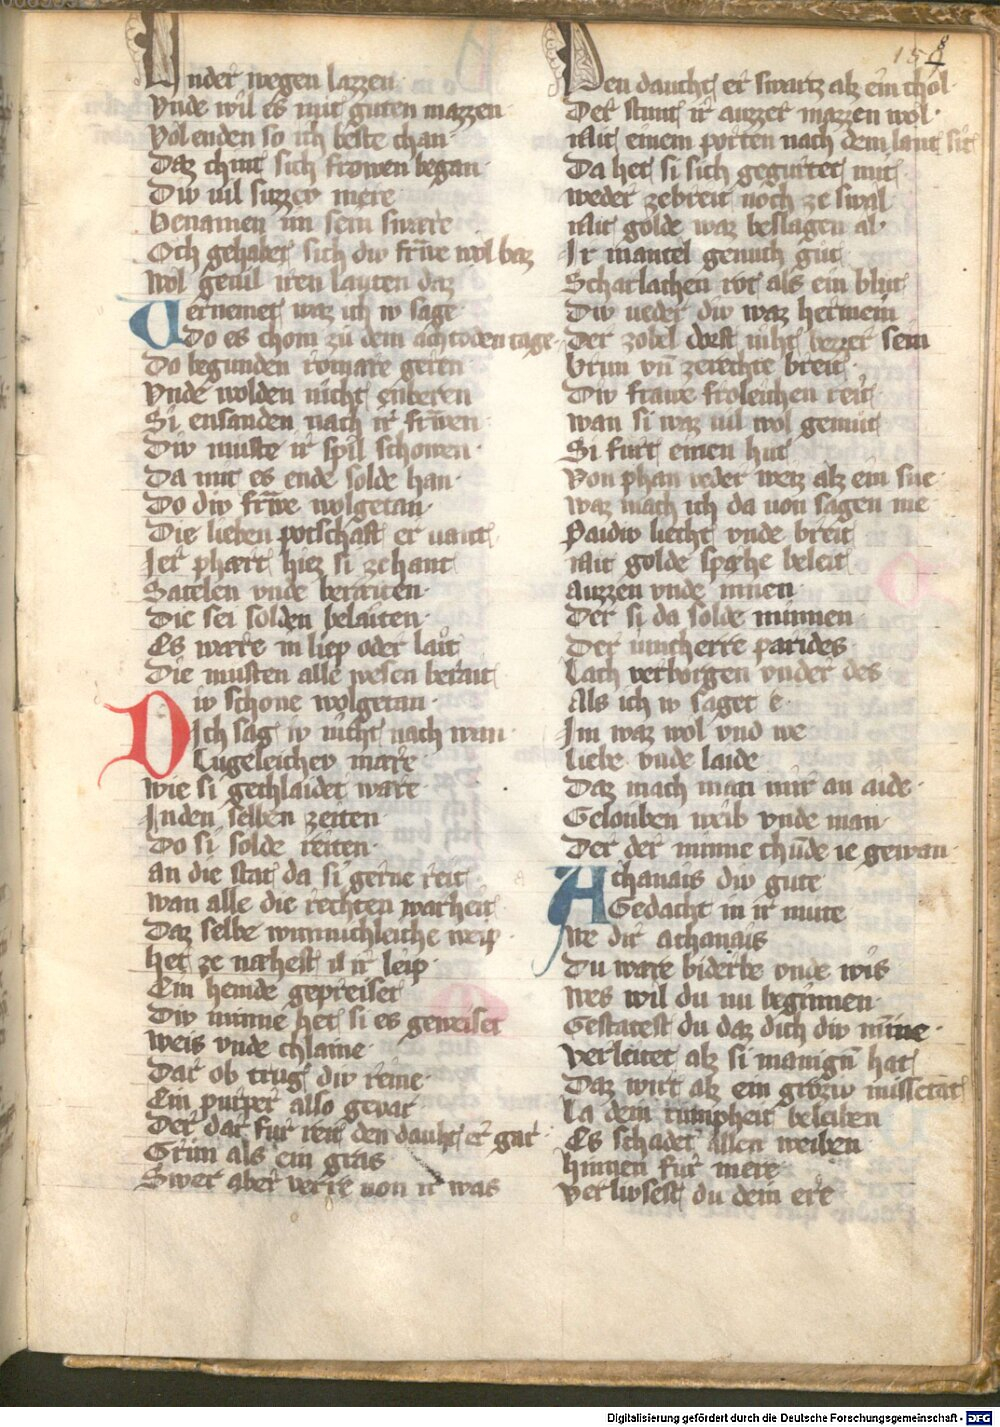 158
Under wegen lazzen
Vnde wil es mit guten mazzen
Volenden so ich beste chan
Daz chint sich frowen began
Div uil suzzev mere
Benamen im sein sware
Och gehabet sich div frwe wol baz
Wol geuil iren lauten daz
Vernemet waz ich iv sage
Do es chom zu dem achtoden tage
Do begunden romare geren
Vnde wolden nicht enberen
Si ensanden nach ir frwen
Div muste ir spil schowen
Da mit es ende solde han
Do div frwe wolgetan
Die lieben potschaft er uant
Ier phart hiez si zehant
Satelen vnde beraiten
Die sei solden belaiten
Es ware in liep oder lait
Die musten alle wesen berait
Div schone wolgetan
Ich sag iv nicht nach wan
Lugeleicher mare
Wie si gechlaidet ware
In den selben zeiten
Do si solde reiten
An die stat da si gerne reit
Wan alle die rechten warheit
Daz selbe wunnichleiche weip
Het ze nachest il ir leip
Ein hemde gepreiset
Div minne het si es geweiset
Weis vnde chlaine
Dar ob trug div reine
Ein purper also gevar
Der dar fur reit den daucht er gar
Grun als ein gras
Swer aber verre von ir was
Den daucht er swartz alz ein chol
Der stunt ir auzzer mazzen wol
Mit einem porten nach dem lant sit
Da het si sich gegurtet mit
Weder ze breit noch ze smal
Mit golde waz beslagen al
Ir mantel genuch gut
Scharlachen rot als ein blut
Div veder div waz hermein
Der zobel dorft niht bezzer sein
Brun vn zerechte breit
Div frawe froleichen reit
Wan si waz uil wol gemut
Si furt einen hut
Von phan veder weiz alz ein sne
Waz mach ich da von sagen me
Paidiv liecht vnde breit
Mit golde spæhe beleit
Auzzen vnde innen
Der si da solde minnen
Der iuncherre parides
Lach verborgen vnder des
Als ich iv saget e
Im waz wol vnd we
Liebe vnde laide
Daz mach man mir an aide
Gelouben weib vnde man
Der der minne chunde ie gewan
Athanais div gute
Gedacht in ir mute
We dir athanais
Du ware biderbe vnde wis
Wes wil du nu beginnen
Gestatest du daz dich div minne
Verleitet alz si manign hat
Daz wirt alz ein groziv missetat
La dein tumpheit beleiben
Es schadet allen weiben
Hinnen fur mere
Verliusest du dein ere
Digitalisierung gefördert durch die Deutsche Forschungsgemeinschaft - DFG